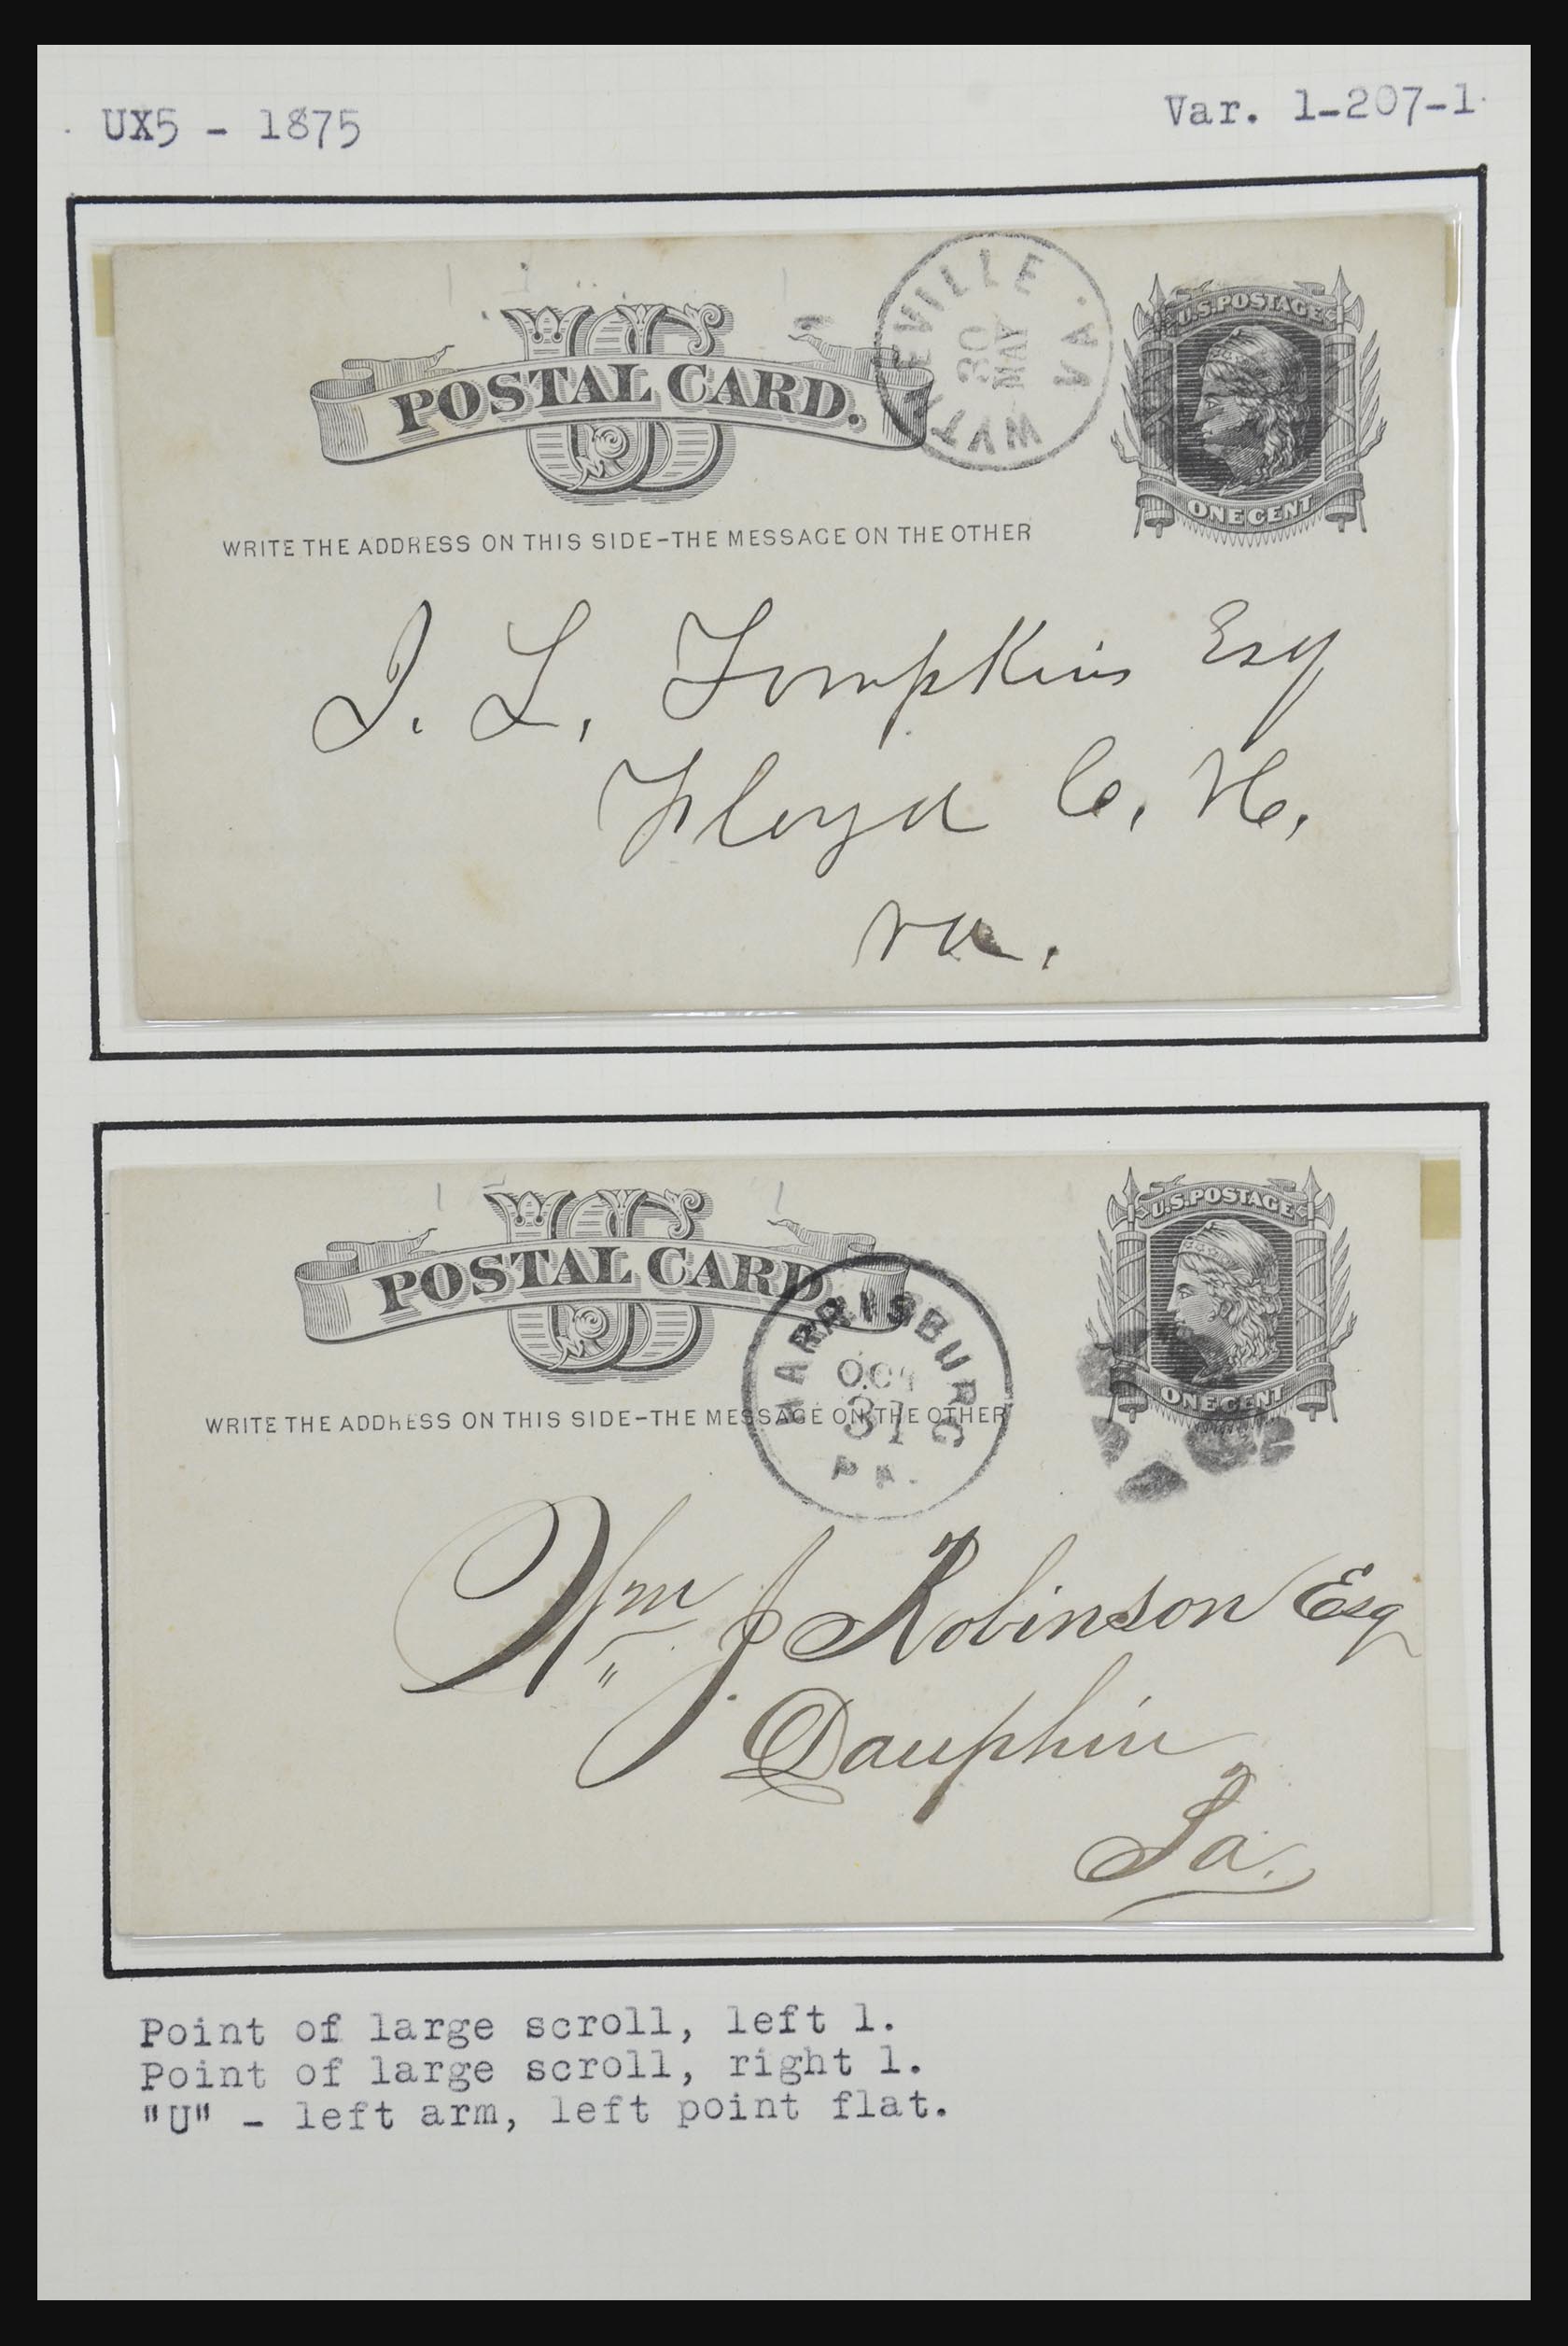 UX5 - 1875
Var. 1-207-1
WYTHEVILLE VA.
30
MAY
U.S. POSTAGE
US
POSTAL CARD.
ONE CENT
WRITE THE ADDRESS ON THIS SIDE-THE MESSAGE ON THE OTHER
J. L. Tompkins Esq
Floyd C. H.
va.
U.S. POSTAGE
US
POSTAL CARD.
HARRISBURG
OCT
31
PA.
ONE CENT
WRITE THE ADDRESS ON THIS SIDE-THE MESSAGE ON THE OTHER
Wm J Robinson Esq
Dauphin
Pa.
Point of large scroll, left 1.
Point of large scroll, right 1.
"U" - left arm, left point flat.